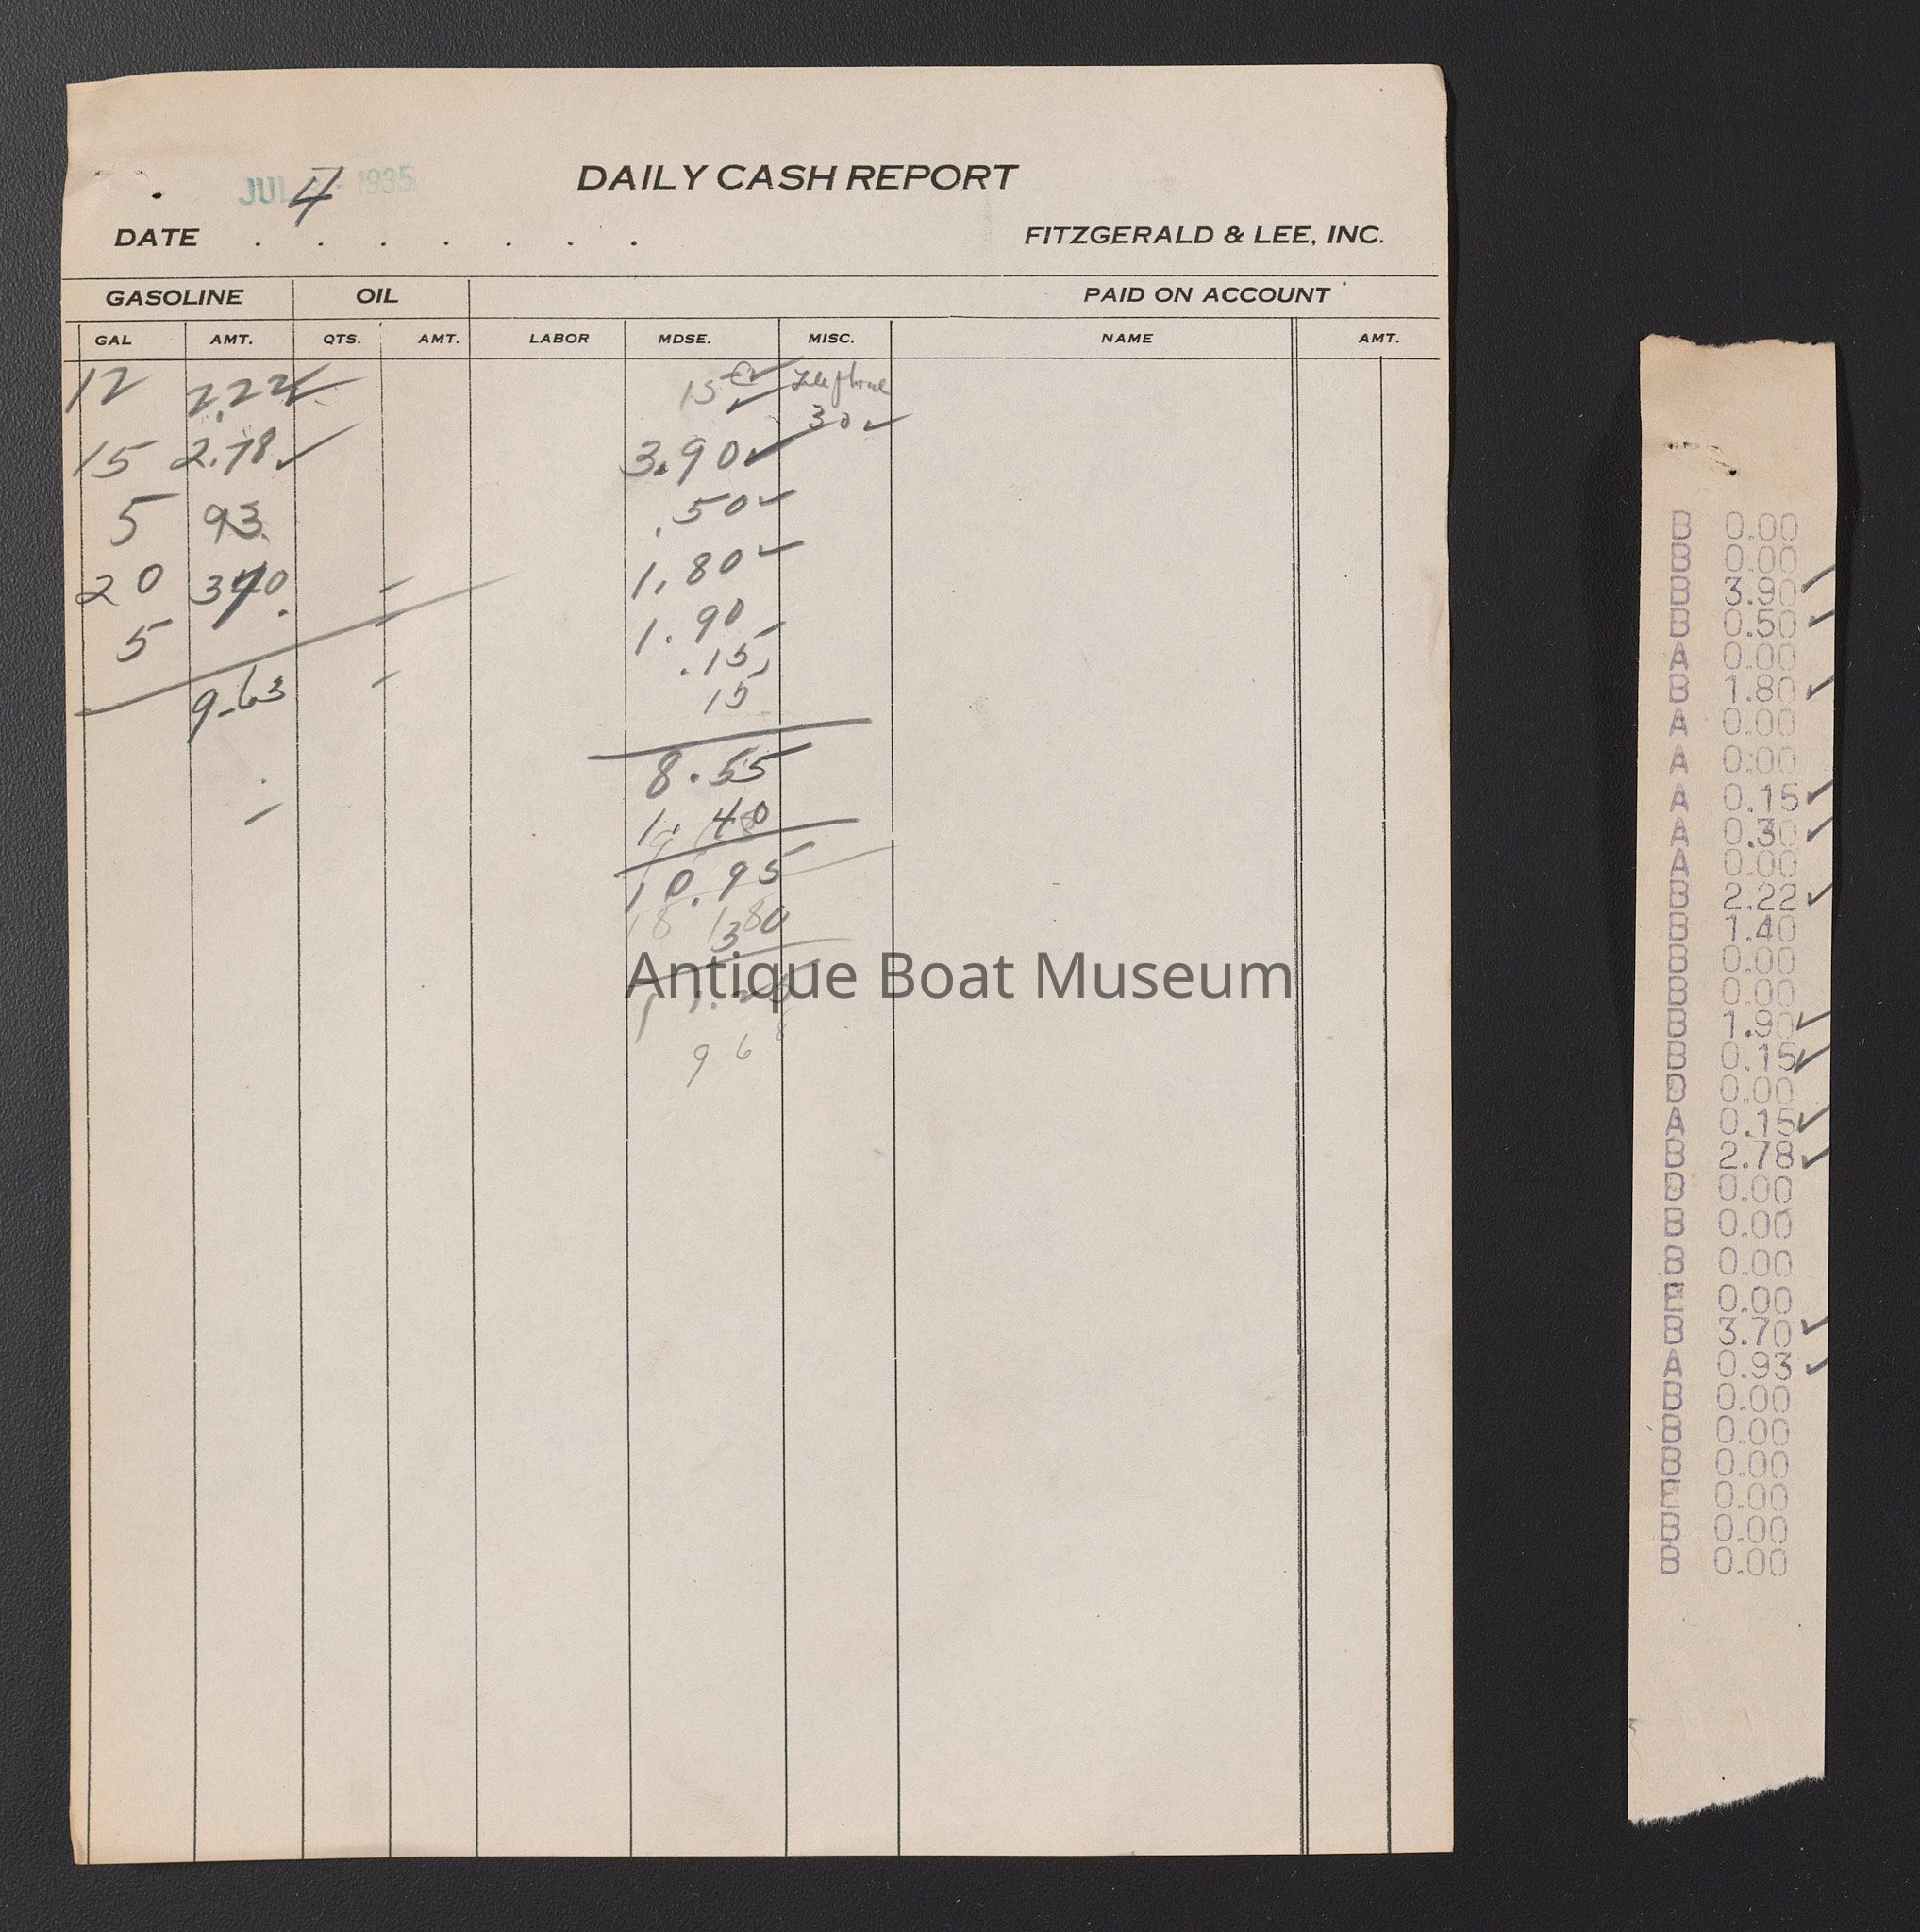 JUL 4 - 1935
DAILY CASH REPORT
DATE . . . . . . .
FITZGERALD & LEE, INC.
GASOLINE OIL PAID ON ACCOUNT
GAL AMT. QTS. AMT. LABOR MDSE. MISC. NAME AMT.
12 2.22 15 Telephone
30
15 2.78 3.90
5 93 .50
20 1.80
5 1.90
.15
9.63 15
8.55
1.40
10.95
9 6
Antique Boat Museum
B 0.00
B 0.00
B 3.90
B 0.50
A 0.00
B 1.80
A 0.00
A 0.00
A 0.15
A 0.30
A 0.00
B 2.22
B 1.40
B 0.00
B 0.00
B 1.90
B 0.15
D 0.00
A 0.15
B 2.78
D 0.00
B 0.00
B 0.00
E 0.00
B 3.70
A 0.93
B 0.00
B 0.00
B 0.00
E 0.00
B 0.00
B 0.00